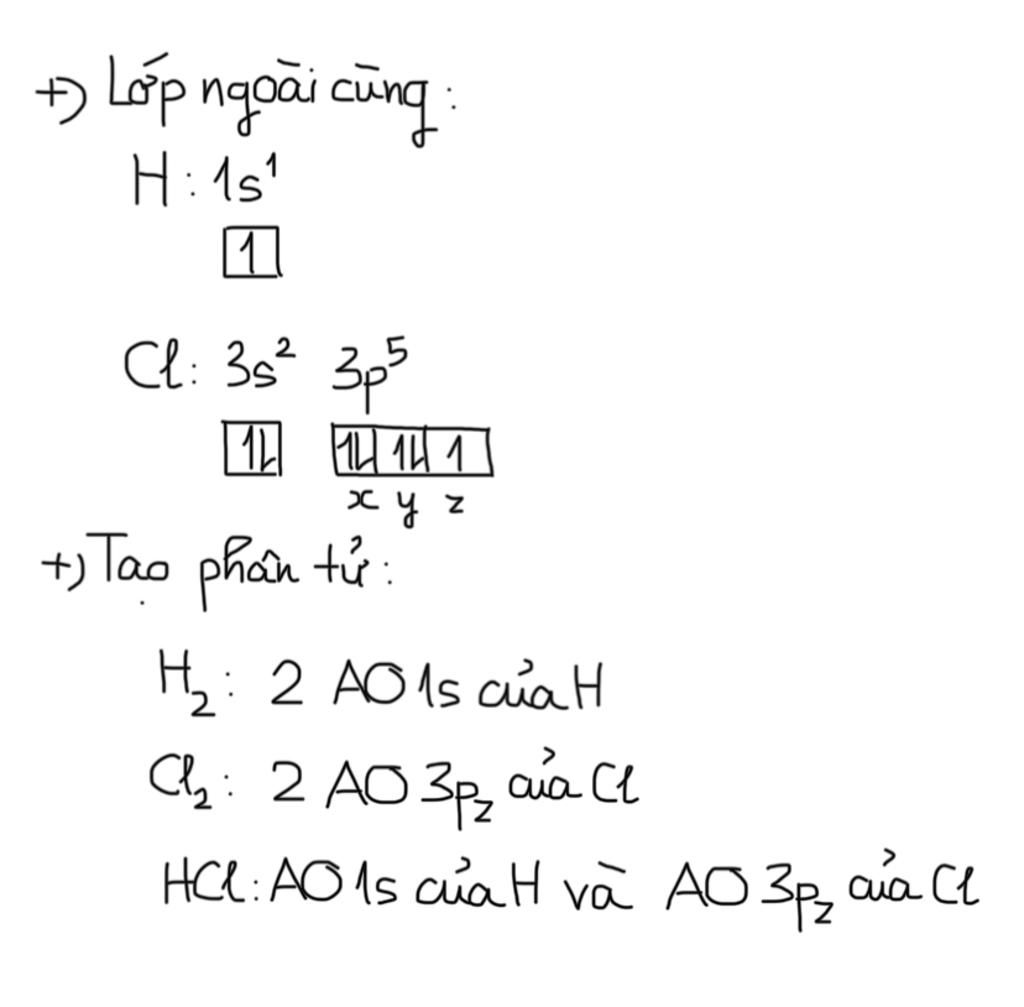 +) Lớp ngoài cùng:
H: 1s¹
1
Cl: 3s² 3p⁵
1l 1l 1l 1
x y z
+) Tạo phân tử:
H₂: 2 AO 1s của H
Cl₂: 2 AO 3p_z của Cl
HCl: AO 1s của H và AO 3p_z của Cl